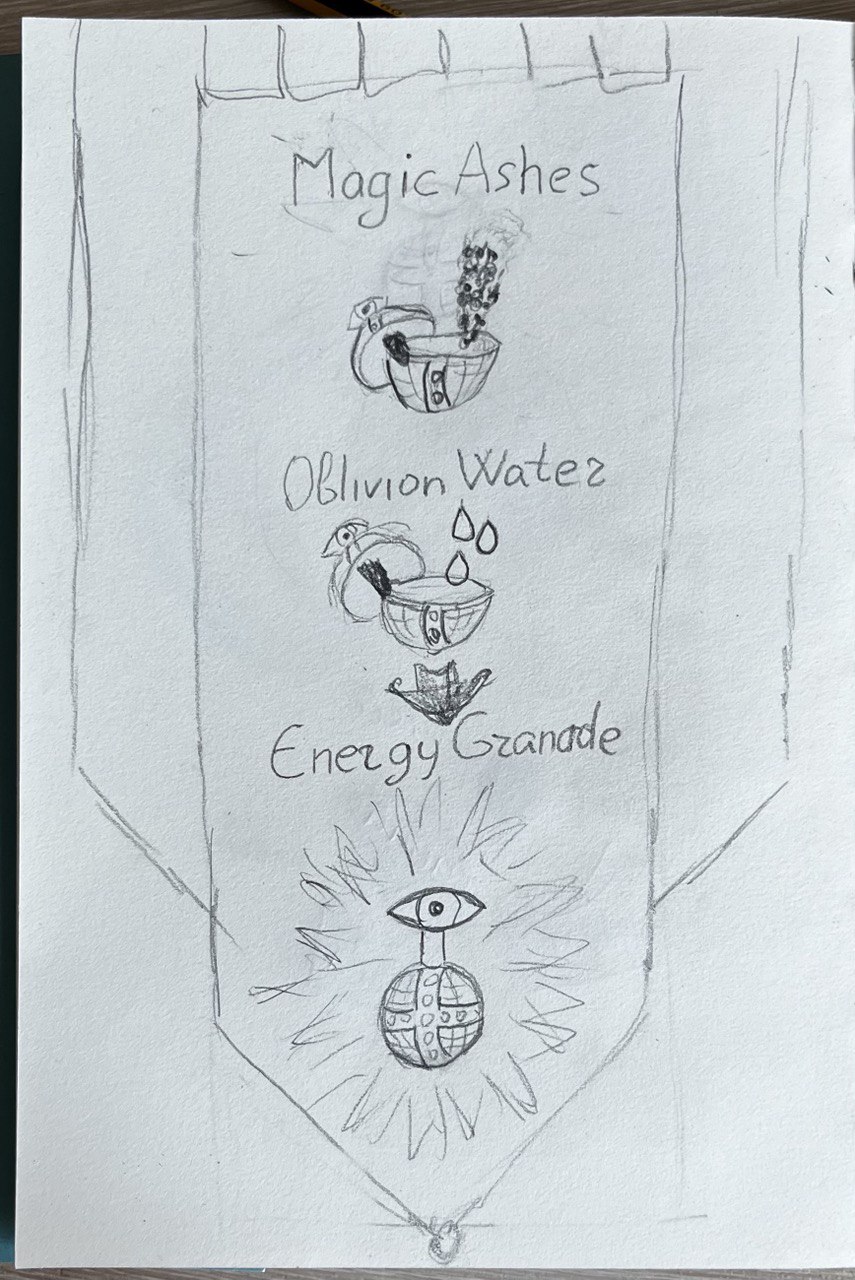 Magic Ashes
Oblivion Water
Energy Granade